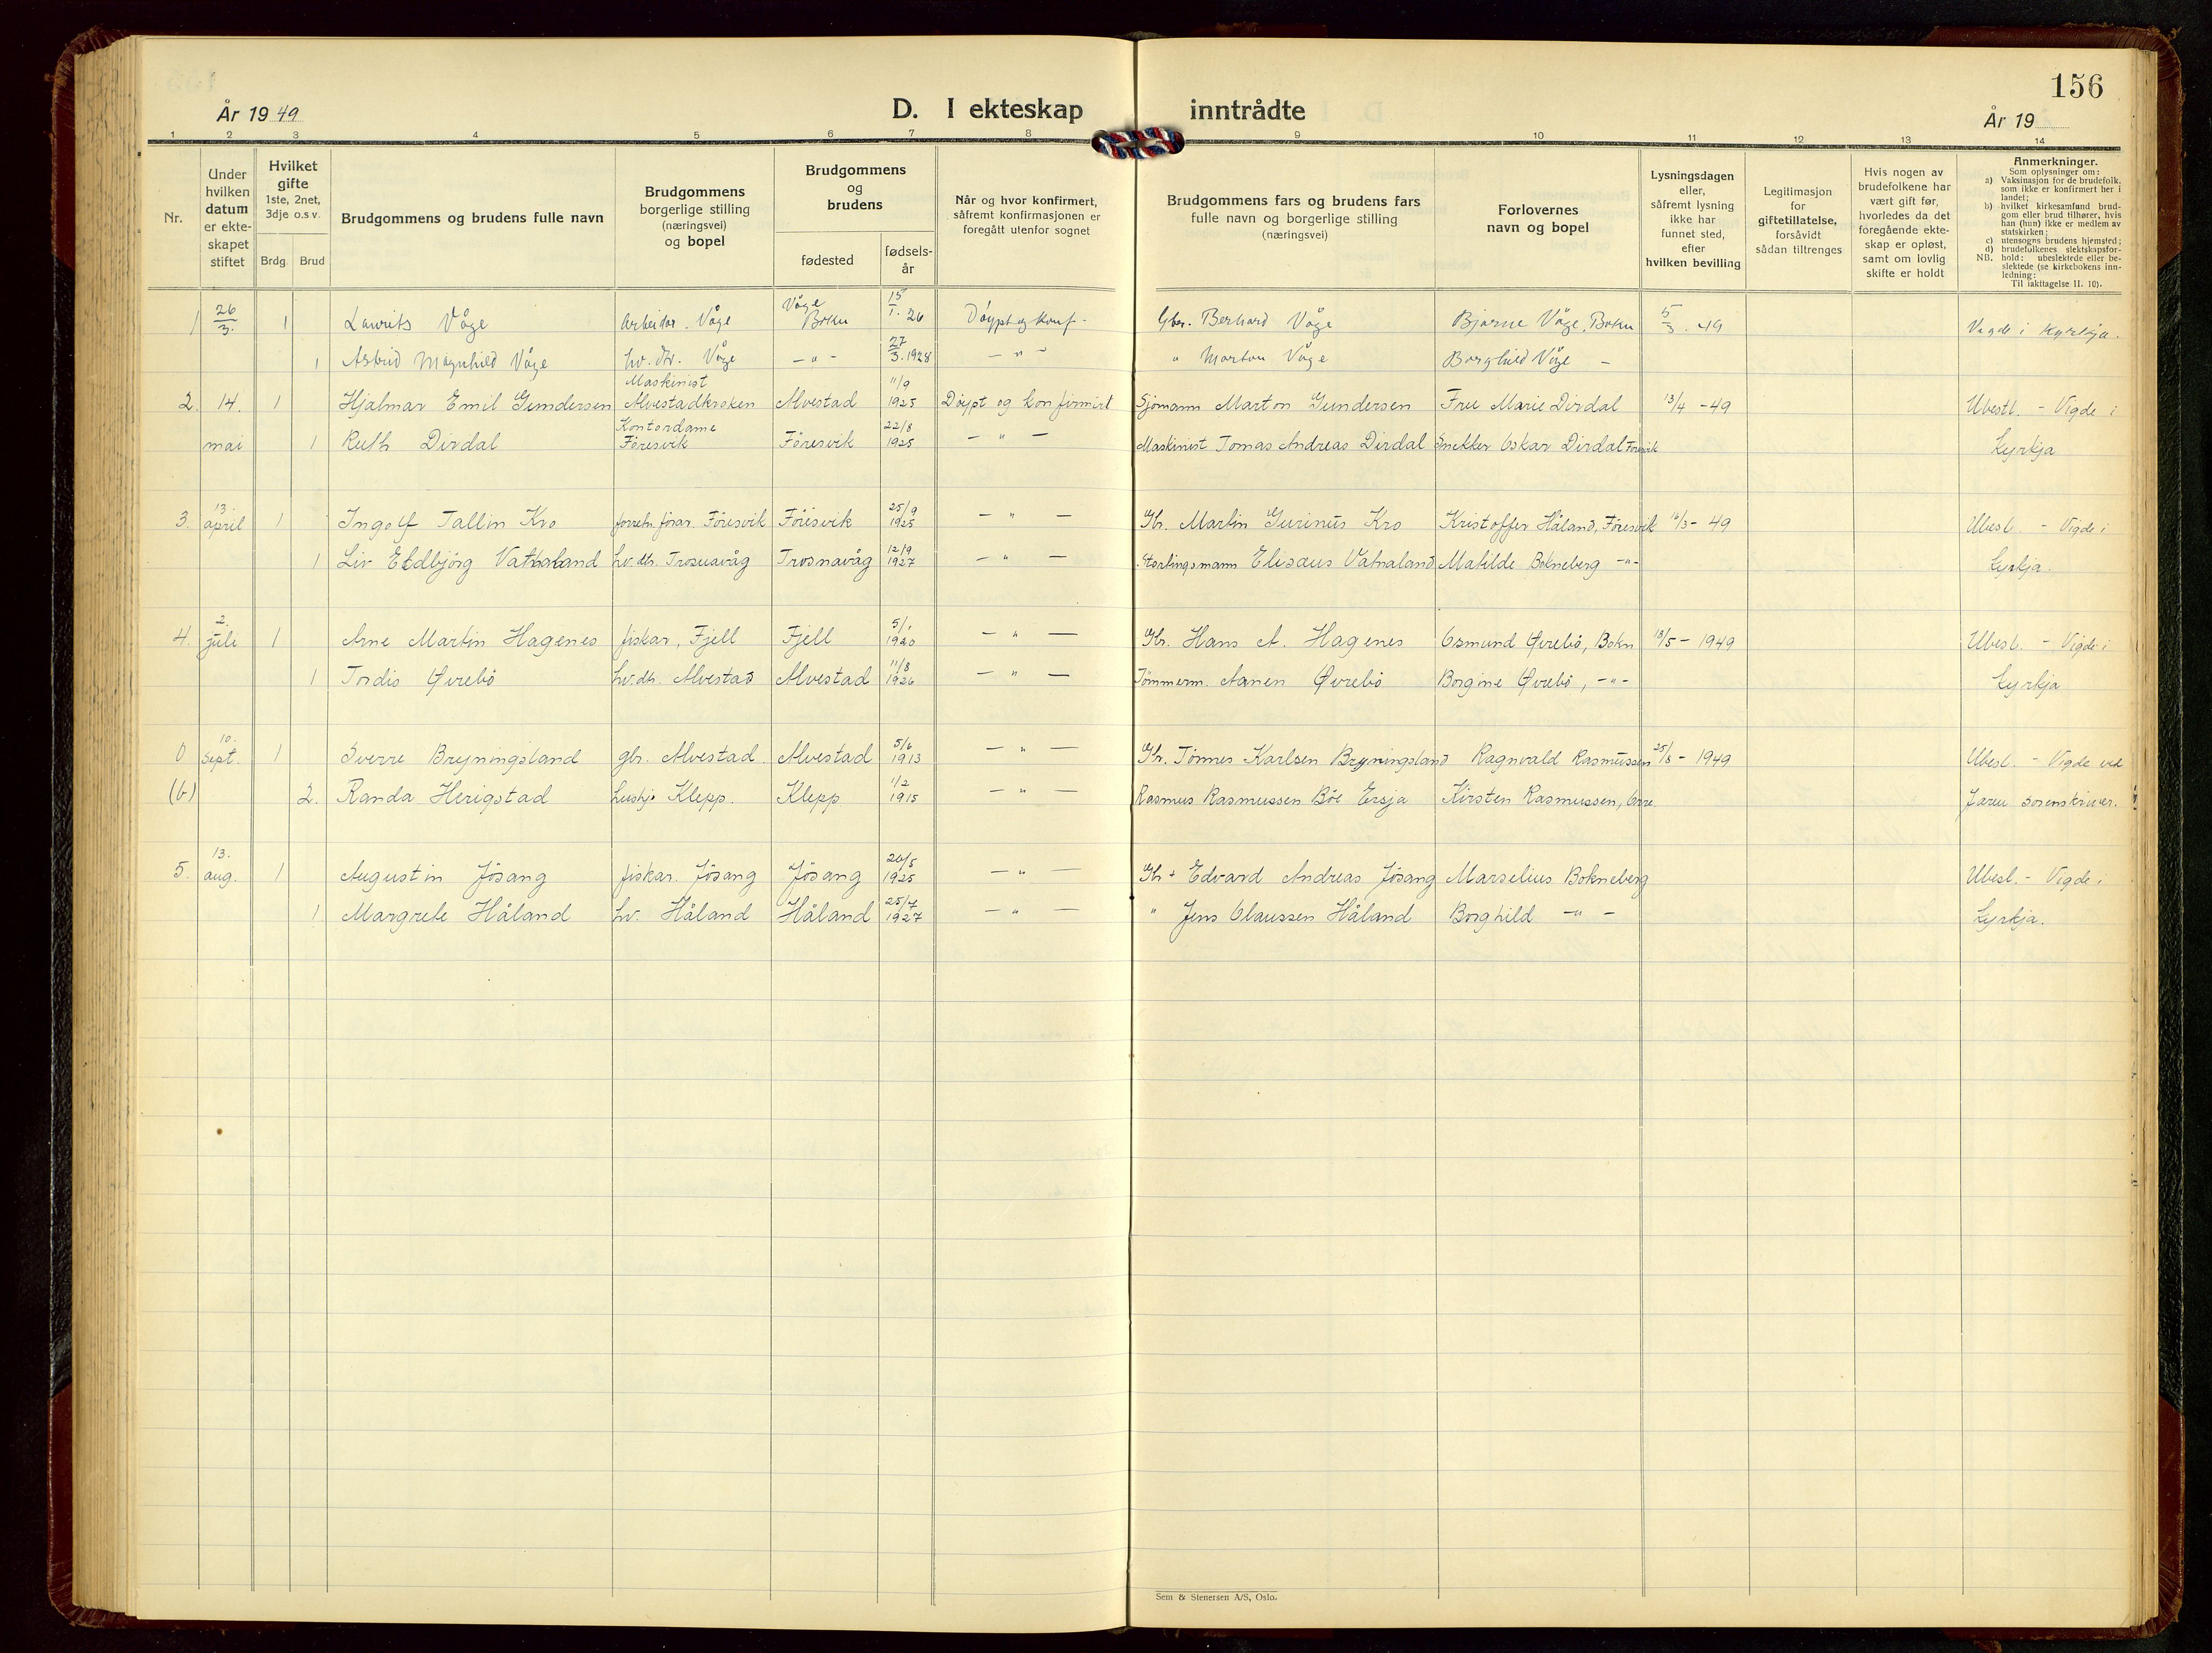 156
År 1949 D. I ekteskap inntrådte År 19
1 2 3 4 5 6 7 8 9 10 11 12 13 14
Nr.
Under hvilken datum er ekteskapet stiftet
Hvilket gifte 1ste, 2net, 3dje o.s.v.
Brdg. Brud
Brudgommens og brudens fulle navn
Brudgommens borgerlige stilling (næringsvei) og bopel
Brudgommens og brudens
fødested fødsels-år
Når og hvor konfirmert, såfremt konfirmasjonen er foregått utenfor sognet
Brudgommens fars og brudens fars fulle navn og borgerlige stilling (næringsvei)
Forlovernes navn og bopel
Lysningsdagen eller, såfremt lysning ikke har funnet sted, efter hvilken bevilling
Legitimasjon for giftetillatelse, forsåvidt sådan tiltrenges
Hvis nogen av brudefolkene har vært gift før, hvorledes da det foregående ekteskap er opløst, samt om lovlig skifte er holdt
Anmerkninger.
Som oplysninger om:
a) Vaksinasjon for de brudefolk, som ikke er konfirmert her i landet;
b) hvilket kirkesamfund brudgom eller brud tilhører, hvis han (hun) ikke er medlem av statskirken;
c) utensogns brudens hjemsted;
d) brudefolkenes slektskapsforhold: ubeslektede eller beslektede (se kirkebokens innledning:
NB.
Til iakttagelse II. 10).
1 26/3. 1 Laurits Våge Arbeidar. Våge Våge Bokn 15/1. 26 Døypt og konf. Gbr. Berhard Våge Bjarne Våge, Bokn 5/3. 49 Vigde i Kyrkja.
1 Astrid Magnhild Våge hv. dtr. Våge — " — 27/3. 1928 — " — " Morton Våge Borghild Våge —
2. 14. 1 Hjalmar Emil Gundersen Maskinist Alvestadkroken Alvestad 11/9 1925 Døypt og konfirmirt Sjømann Marton Gundersen Fru Marie Dirdal 13/4 - 49 Ubesl. - Vigde i
mai 1 Ruth Dirdal Kontordame Føresvik Føresvik 22/8 1925 — " — Maskinist Tomas Andreas Dirdal Snekker Oskar Dirdal Føresvik Kyrkja
3. 13. april 1 Ingolf Tallin Kro forretn.førar. Føresvik Føresvik 25/9 1925 — " — Gbr. Martin Gurinus Kro Kristoffer Håland, Føresvik 16/3 - 49 Ubesl. - Vigde i
1 Liv Eldbjørg Vatnaland hv. dtr. Trosnavåg Trosnavåg 12/9 1927 — " — Stortingsmann Elisaus Vatnaland Matilde Bokneberg - " - Kyrkja.
4. 2. juli 1 Arne Martin Hagenes fiskar, Fjell Fjell 5/1 1920 — " — Gbr. Hans A. Hagenes Osmund Øvrebø, Bokn 13/5 - 1949 Ubesl. - Vigde i
1 Tordis Øvrebø hv. dtr. Alvestad Alvestad 11/8 1926 — " — Tømmerm. Aanen Øvrebø Borgine Øvrebø, - " - Kyrkja
0 10. sept. 1 Sverre Bryningsland gbr. Alvestad. Alvestad 5/6 1913 — " — Gbr. Tønnes Karlsen Bryningsland Ragnvald Rasmussen 25/8 - 1949 Ubesl. - Vigde ved
(6) 2. Randa Herigstad Klepp. Klepp 1/2 1915 — " — Rasmus Rasmussen Böe Ersja Kirsten Rasmussen, Orre Jæren sorenskriver.
5. 13. aug. 1 Augustin Jøsang fiskar. Jøsang Jøsang 20/5 1925 — " — Gbr + Edvard Andreas Jøsang Marselius Bokneberg Ubesl. - Vigde i
1 Margrete Håland hv. Håland Håland 25/7 1927 — " — " Jens Claussen Håland Borghild - " - Kyrkja.
Sem & Stenersen A/S, Oslo.